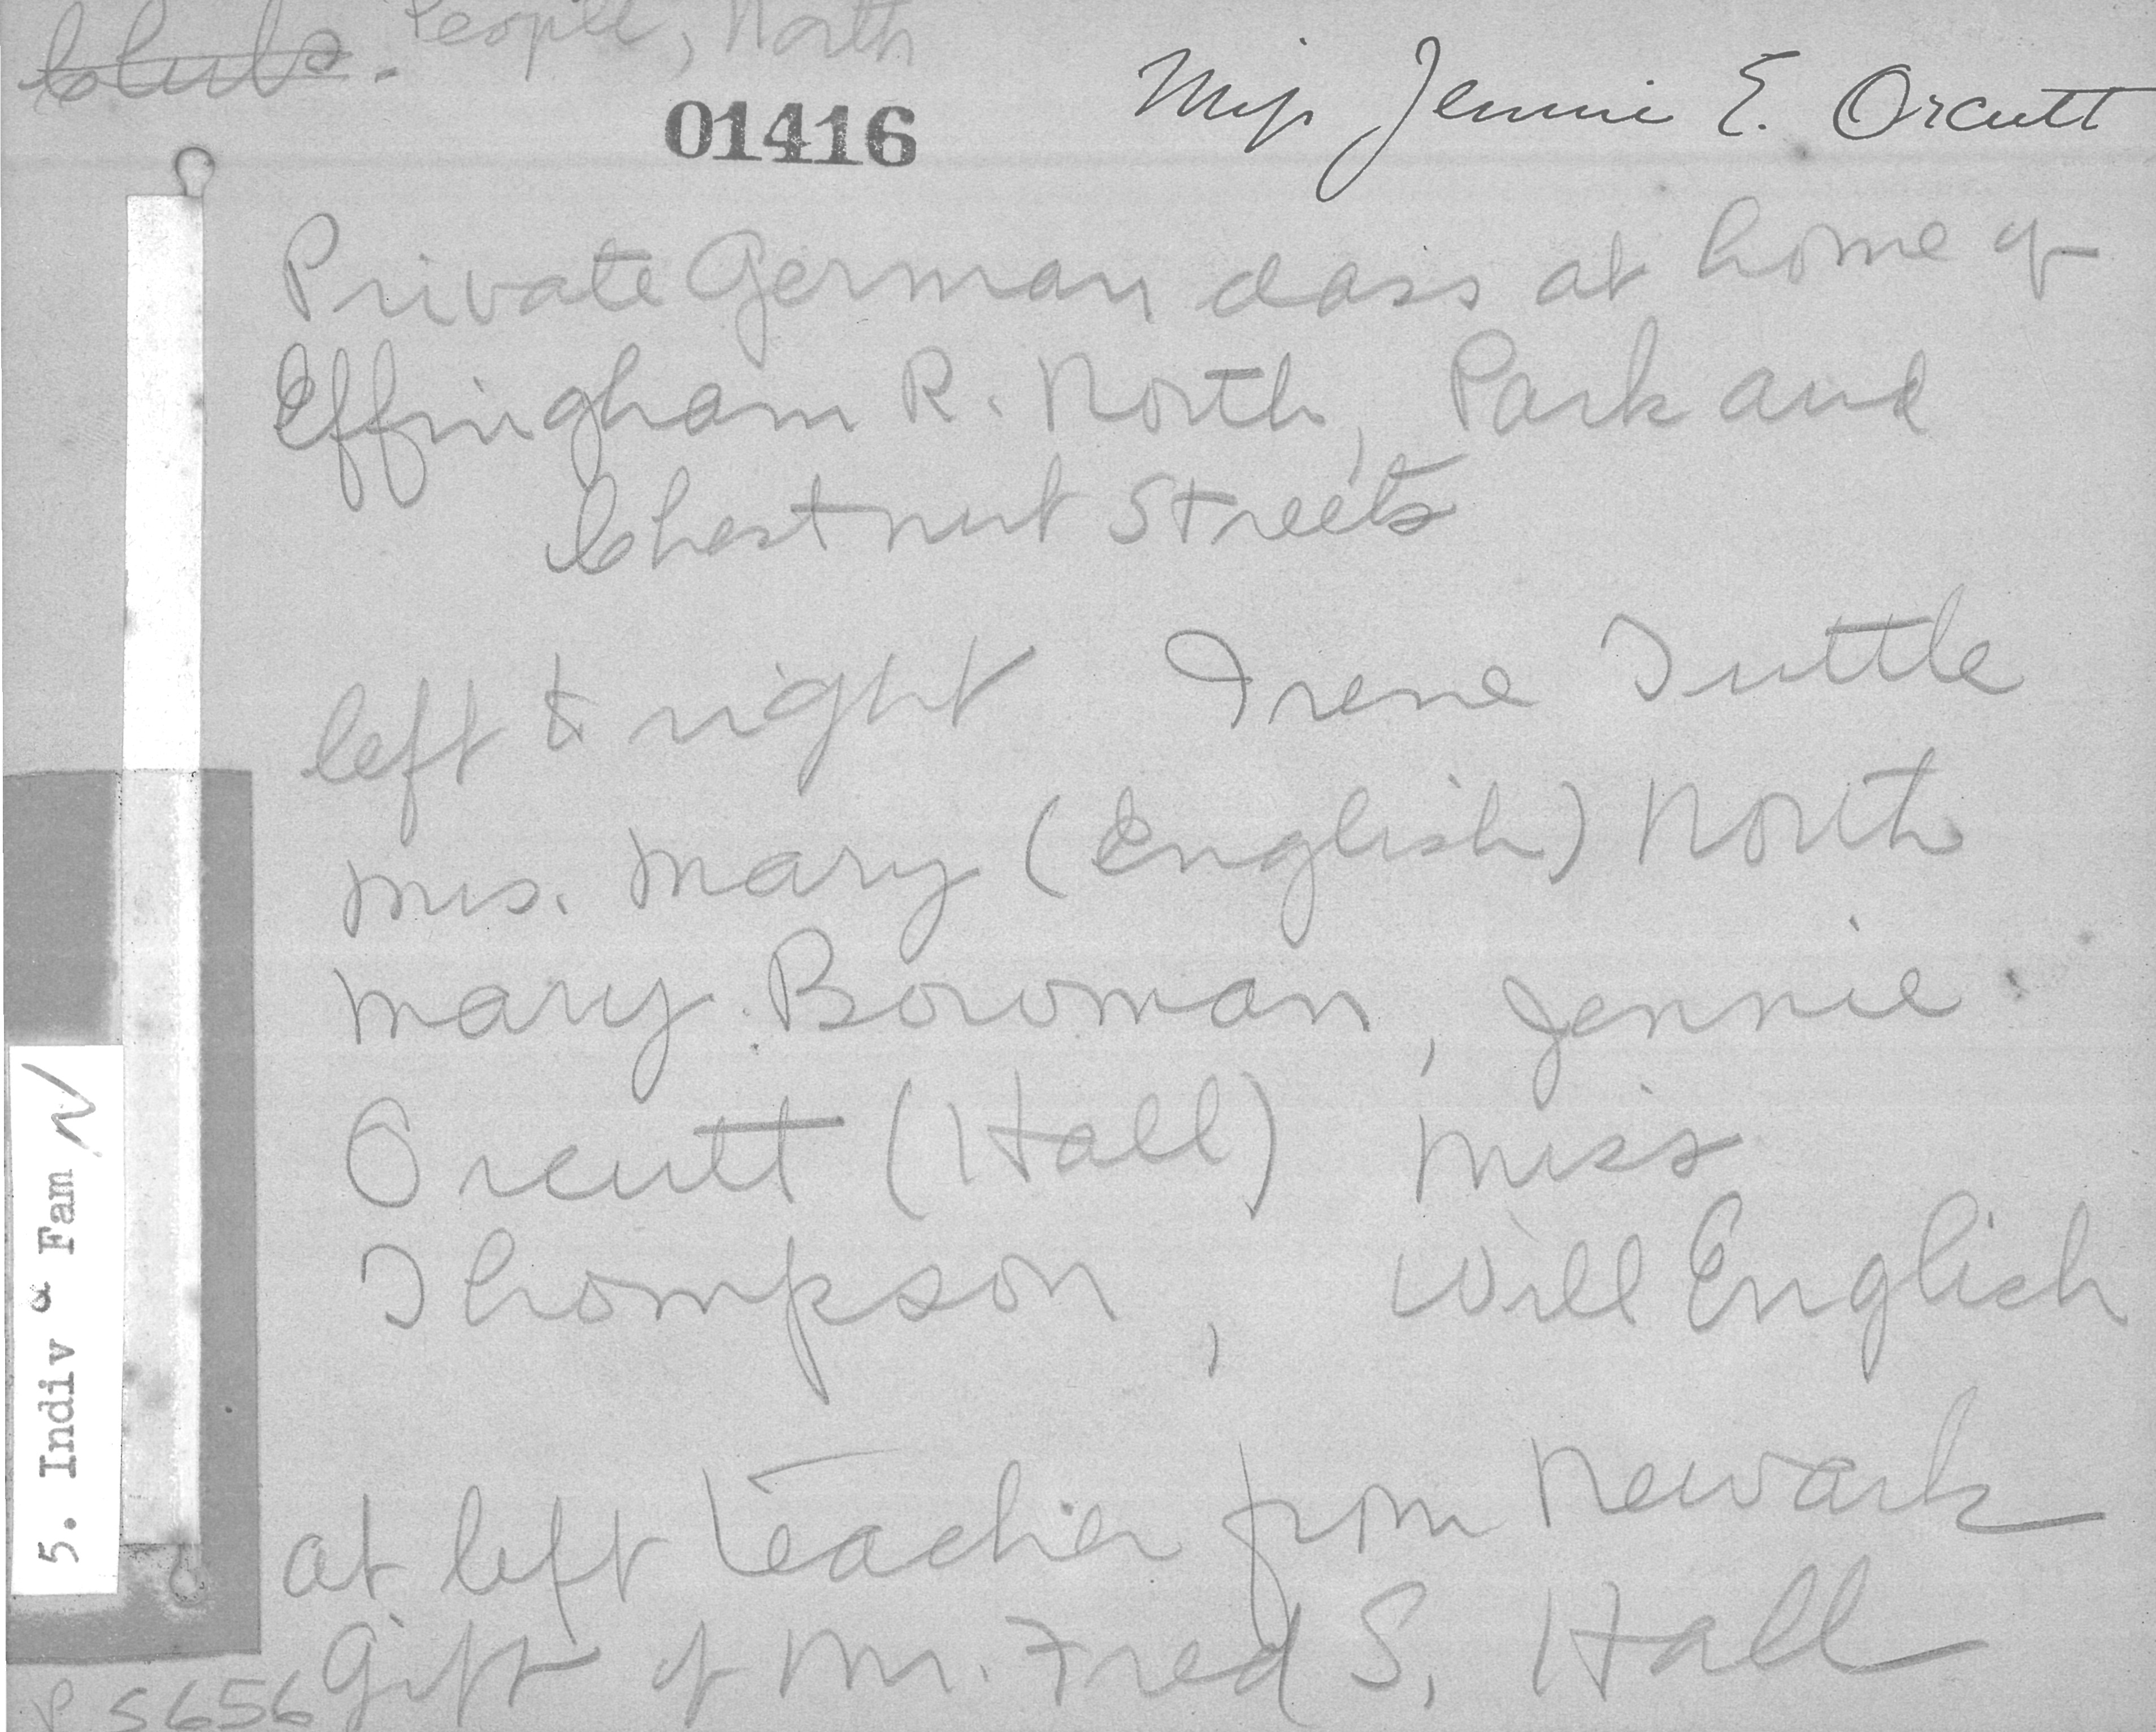 Clubs. People, North
01416
Miss Jennie E. Orcutt
Private German class at home of
Effingham R. North, Park and
Chestnut Streets
left to right Irene Tuttle
Mrs. Mary (English) North
Mary Bowman, Jennie
Orcutt (Hall) Miss
Thompson, Will English
at left teacher from Newark
Gift of Mr. Fred S. Hall
P 5656
5. Indiv & Fam N